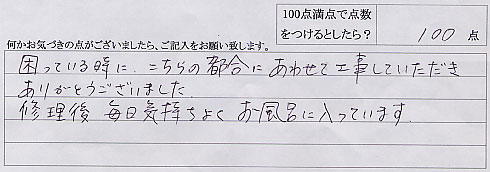 100点満点で点数
をつけるとしたら？ 100 点
何かお気づきの点がございましたら、ご記入をお願い致します。
困っている時に、こちらの都合にあわせて工事していただき
ありがとうございました
修理後 毎日気持ちよく お風呂に入っています.